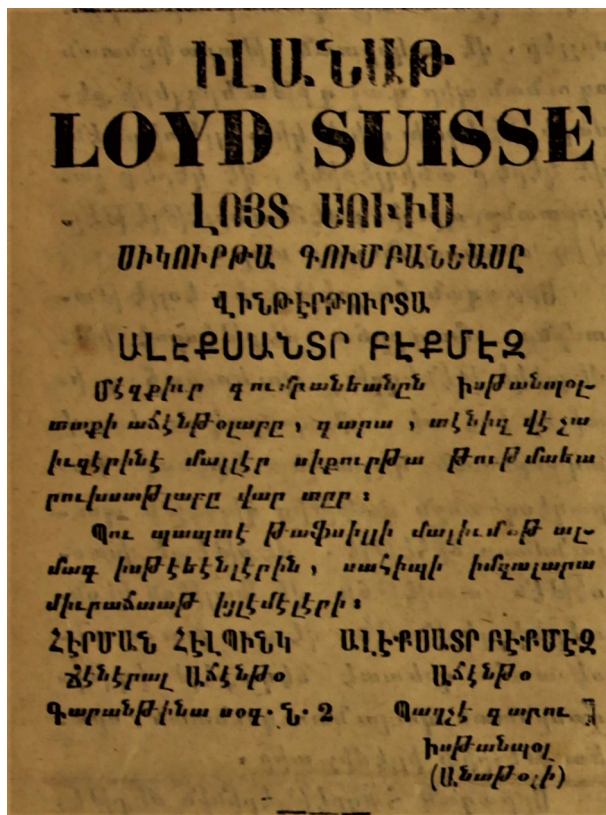 ԻԼԱՆԱԹ
LOYD SUISSE
ԼՈՅՏ ՍՈՒԻՍ
ՍԻԿՈՒՐԹԱ ԳՈՒՄԲԱՆԵԱՍԸ
ՎԻՆԹԷՐԹՈՒՐՏԱ
ԱԼԷՔՍԱՆՏՐ ԲԷՔՄԷԶ
Մէզքիւր գումբանեանըն իսթանպօլ-
տաքի աճէնթօլարը, գարա, տէնիզ վէ չա
իւզէրինէ մալլէր սիքուրթա թութմաեա
րուխսաթլարը վար տըր ։
Պու պապտէ թաֆսիլլի մալիւմաթ ալ-
մագ իսթէեէնլէրին, սահիպի իմզալարա
միւրաճաաթ իյլէմէլէրի ։
ՀԷՐՄԱՆ ՀԷԼՊԻՆԿ ԱԼԷՔՍԱՏՐ ԲԷՔՄԷԶ
Ճէնէրալ Աճէնթօ Աճէնթօ
Գարանթինա սօգ. Ն. 2 Պաղչէ գարու
իսթանպօլ
(Անաթօլի)